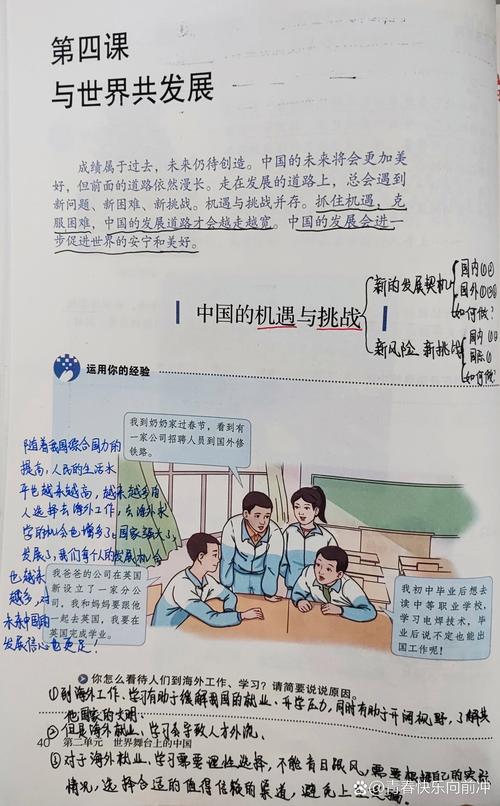 第四课
与世界共发展
成绩属于过去，未来仍待创造。中国的未来将会更加美
好，但前面的道路依然漫长。走在发展的道路上，总会遇到
新问题、新困难、新挑战。机遇与挑战并存。抓住机遇，克
服困难，中国的发展道路才会越走越宽。中国的发展会进一
步促进世界的安宁和美好。
中国的机遇与挑战
新的发展契机
国内①②
国外①②
如何做？
新风险 新挑战
国内
国际①
如何做？
运用你的经验
我到奶奶家过春节，看到有
一家公司招聘人员到国外修
铁路。
随着我国综合国力的
提高，人民的生活水
平也越来越高，越来越多的
人选择去海外工作，去海外求
学的机会也增多了。国家强大了，
发展了，我们每个人的发展机会
也越来
越多，对
未来中国的
发展信心也更足！
我爸爸的公司在英国
新设立了一家分公
司，我和妈妈要跟他
一起去英国，我要在
英国完成学业。
我初中毕业后想去
读中等职业学校，
学习电焊技术，毕
业后说不定也能出
国工作呢！
你怎么看待人们到海外工作、学习？请简要说说原因。
①到海外工作、学习有助于缓解我国的就业、升学压力，同时有助于开阔视野，了解其
他国家的文明.
②但是海外就业、学习会导致人才外流.
40 第二单元 世界舞台上的中国
③对于海外就业、学习需要理性选择，不能盲目跟风，需要根据自己的实际
情况，选择合适的值得信赖的渠道，避免上当
@青春快乐向前冲